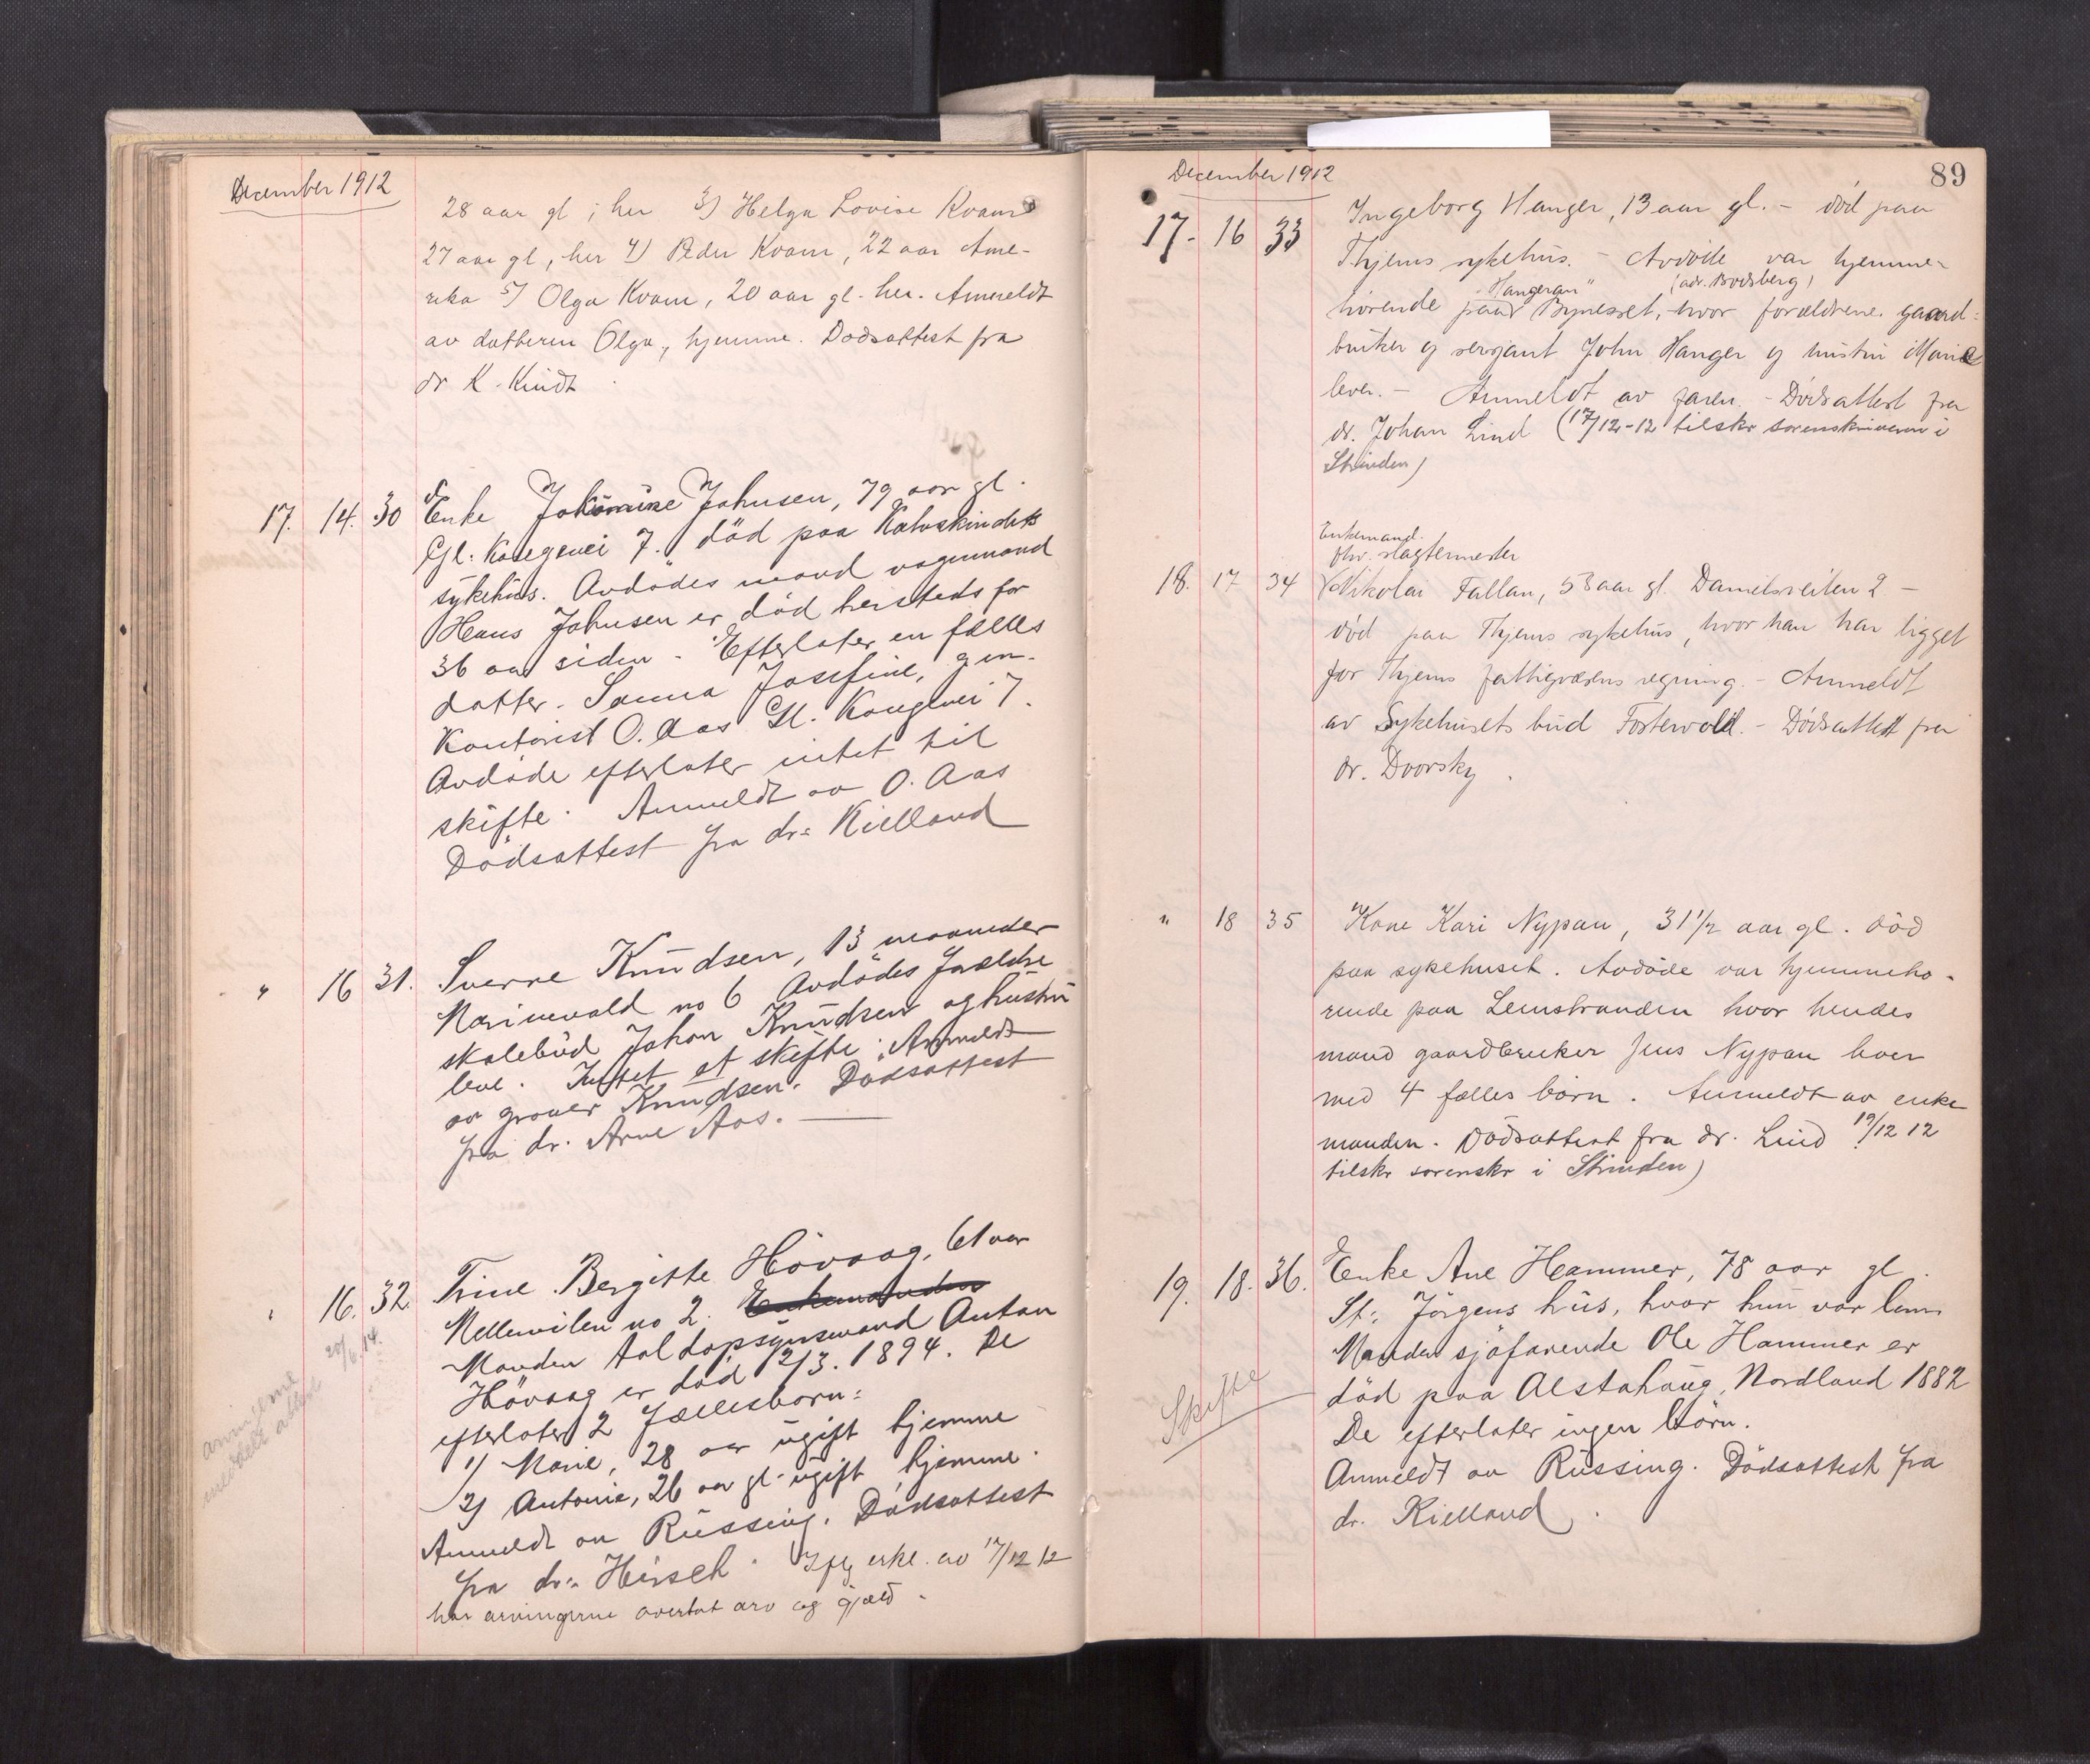 December 1912
28 aar gl ; her 3) Helga Lovise Kvam
27 aar gl, her 4) Peder Kvam, 22 aar Ame-
rika 5) Olga Kvam, 20 aar gl. her. Anmeldt
av datteren Olga, hjemme. Dødsattest fra
dr K. Kindt
17. 14. 30 Enke Johnsen, 79 aar gl.
Gl. Kongevei 7. död paa Kalvskindets
sykehus. Avdödes mand vognmand
Hans Johnsen er död hersteds for
36 aar siden - Efterlater en fælles
datter - Sanna Josefine, g. m.
Kontorist O. Aas Gl. Kongevei 7.
Avdöde efterlater intet til
skifte. Anmeldt av O. Aas
Dödsattest fra dr. Kielland
" 16 31. Sverre Knudsen, 13 maaneder
Marinevold no 6 Avdödes forældre
skolebud Johan Knudsen og hustru
leve. Intet at skifte. Anmeldt
av graver Knudsen. Dødsattest
fra dr. Arne Aas.
" 16. 32 Trine Bergitte Hövaag, 61 aar
Mellemilen no 2. Enkemanden
Manden toldopsynsmand Anton
Hövaag er död 12/3. 1894. De
efterlater 2 fællesbörn:
1) Marie, 28 aar ugift hjemme
2) Antonie, 26 aar gl. ugift hjemme.
Anmeldt av Rüssing. Dödsattest
fra dr. Hirsch. Ifg erkl. av 17/12 12
har arvingerne overtat arv og gjæld.
20/6.14.
meddelt attest
December 1912
89
17. 16 33 Ingeborg Hanger, 13 aar gl. - död paa
Thjems sykehus. - Avdöde var hjemme-
"Hangeran" (adr. Bodsberg)
hörende paa Bynesset, hvor forældrene gaard-
bruker og sersjant John Hanger og hustru Marie
lever. - Anmeldt av faren. - Dödsattest fra
dr. Johan Lind (17/12-12 tilskr sorenskriveren i
Strinden)
Enkemand.
fhv. slagtermester
18. 17 34 Nikolai Fallan, 53 aar gl. Danielsveiten 2 -
död paa Thjems sykehus, hvor han har ligget
for Thjems fattigvæsens regning. - Anmeldt
av Sykehusets bud Fostervold. - Dödsattest fra
dr. Dvorsky.
" 18 35 Kone Kari Nypan, 31 1/2 aar gl. död
paa sykehuset. Avdöde var hjemmehö-
rende paa Leinstranden hvor hendes
mand gaardbruker Jens Nypan lever
med 4 fælles börn. Anmeldt av enke
manden. Dödsattest fra dr. Lind 19/12 12
tilskr sorenskr i Strinden)
19. 18. 36. Enke Ane Hammer, 78 aar gl.
St. Jörgens hus, hvor hun var lem.
Manden sjöfarende Ole Hammer er
död paa Alstahaug, Nordland 1882
De efterlater ingen börn.
Anmeldt av Rüssing. Dödsattest fra
dr. Kielland.
Skifte